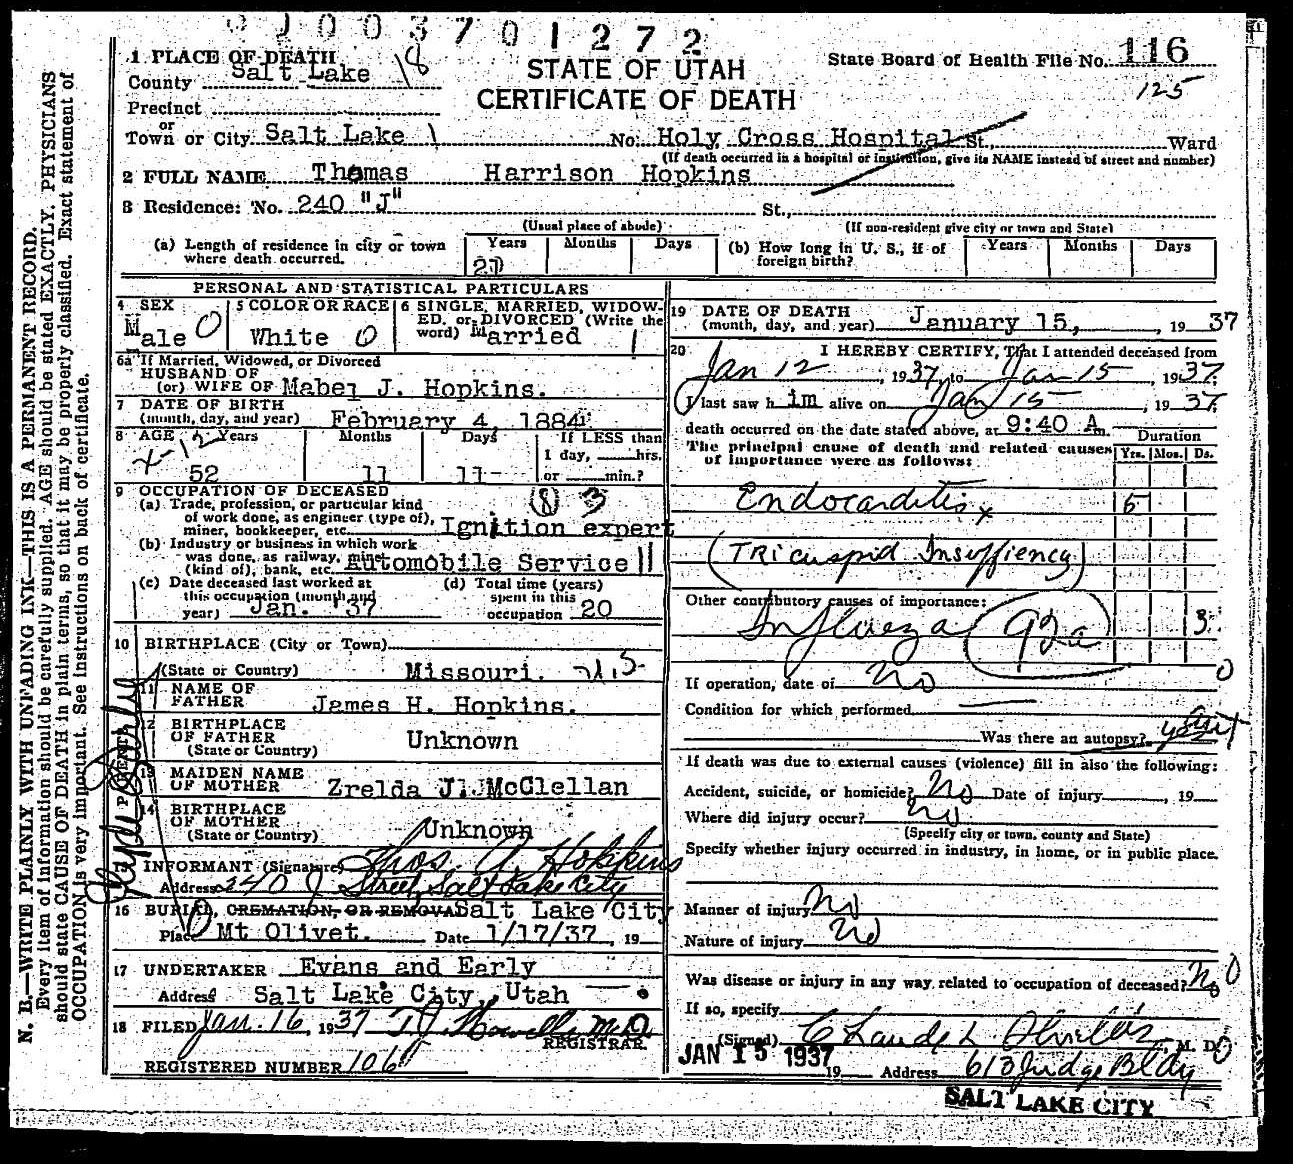 0 0 0 3 7 0 1 2 7 2
1 PLACE OF DEATH
County Salt Lake 18
Precinct
or
Town or City Salt Lake 1
STATE OF UTAH
CERTIFICATE OF DEATH
State Board of Health File No. 116
125
No. Holy Cross Hospital St., Ward
(If death occurred in a hospital or institution, give its NAME instead of street and number)
2 FULL NAME Thomas Harrison Hopkins
3 Residence: No. 240 "J" St.,
(Usual place of abode) (If non-resident give city or town and State)
(a) Length of residence in city or town where death occurred. Years Months Days
(b) How long in U. S., if of foreign birth? Years Months Days
PERSONAL AND STATISTICAL PARTICULARS
4 SEX
Male 0
5 COLOR OR RACE
White 0
6 SINGLE, MARRIED, WIDOW-
ED, or DIVORCED (Write the
word) Married 1
6a If Married, Widowed, or Divorced
HUSBAND OF
(or) WIFE OF Mabel J. Hopkins.
7 DATE OF BIRTH
(month, day, and year) February 4, 1884
8 AGE Years Months Days If LESS than
1 day, hrs.
or min.?
52 11 11
9 OCCUPATION OF DECEASED
(a) Trade, profession, or particular kind
of work done, as engineer (type of),
miner, bookkeeper, etc. Ignition expert
(b) Industry or business in which work
was done, as railway, mine
(kind of), bank, etc. Automobile Service 11
(c) Date deceased last worked at
this occupation (month and
year) Jan. '37
(d) Total time (years)
spent in this
occupation 20
10 BIRTHPLACE (City or Town)
(State or Country) Missouri.
11 NAME OF
FATHER James H. Hopkins.
12 BIRTHPLACE
OF FATHER
(State or Country) Unknown
13 MAIDEN NAME
OF MOTHER Zrelda J. McClellan
14 BIRTHPLACE
OF MOTHER
(State or Country) Unknown
PARENTS
15 INFORMANT (Signature) Thos. A Hopkins
Address 240 J Street, Salt Lake City
16 BURIAL, CREMATION, OR REMOVAL Salt Lake City
Place Mt Olivet. Date 1/17/37, 19
17 UNDERTAKER Evans and Early
Address Salt Lake City, Utah
18 FILED Jan. 16, 1937 M.D.
REGISTRAR.
REGISTERED NUMBER 106
19 DATE OF DEATH
(month, day, and year) January 15, , 19 37
20 I HEREBY CERTIFY, That I attended deceased from
Jan 12, 1937, to Jan 15, 1937.
I last saw him alive on Jan 15, 1937.
death occurred on the date stated above, at 9:40 A m.
The principal cause of death and related causes
of importance were as follows:
Duration
Yrs. Mos. Ds.
Endocarditis 5
(Tricuspid Insuffiency)
Other contributory causes of importance:
Influeza 92a 3
If operation, date of No 0
Condition for which performed
Was there an autopsy?
If death was due to external causes (violence) fill in also the following:
Accident, suicide, or homicide? No Date of injury , 19
Where did injury occur? No
(Specify city or town, county and State)
Specify whether injury occurred in industry, in home, or in public place.
Manner of injury No
Nature of injury No
Was disease or injury in any way related to occupation of deceased? No 0
If so, specify
(Signed) Claude L , M. D. 0
JAN 15 1937 19 Address 613 Judge Bldg
SALT LAKE CITY
N. B.—WRITE PLAINLY WITH UNFADING INK—THIS IS A PERMANENT RECORD.
Every item of information should be carefully supplied. AGE should be stated EXACTLY. PHYSICIANS
should state CAUSE OF DEATH in plain terms, so that it may be properly classified. Exact statement of
OCCUPATION is very important. See instructions on back of certificate.